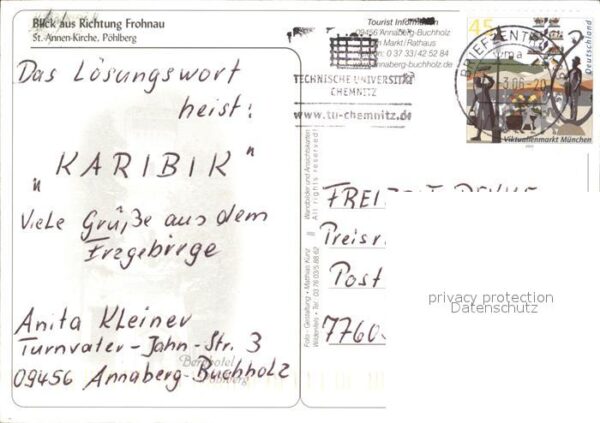 Blick aus Richtung Frohnau
St.-Annen-Kirche, Pöhlberg
Das Lösungswort
heist:
"KARIBIK"
Viele Grüße aus dem
Erzgebirge
Anita Kleiner
Turnvater-Jahn-Str. 3
09456 Annaberg-Buchholz
Berghotel
Pöhlberg
Tourist Information
09456 Annaberg-Buchholz
Markt/Rathaus
0 37 33/42 52 84
www.annaberg-buchholz.de
TECHNISCHE UNIVERSITÄT
CHEMNITZ
www.tu-chemnitz.de
45
Deutschland
BRIEFZENTRUM
Viktualienmarkt München
Wandbilder und Ansichtskarten
All rights reserved!
Foto - Gestaltung - Mathias Kunz
Wildenfels • Tel.: 03 76 03/5 88 62
FREIZEIT REVUE
Preisr
Post
7760
privacy protection
Datenschutz